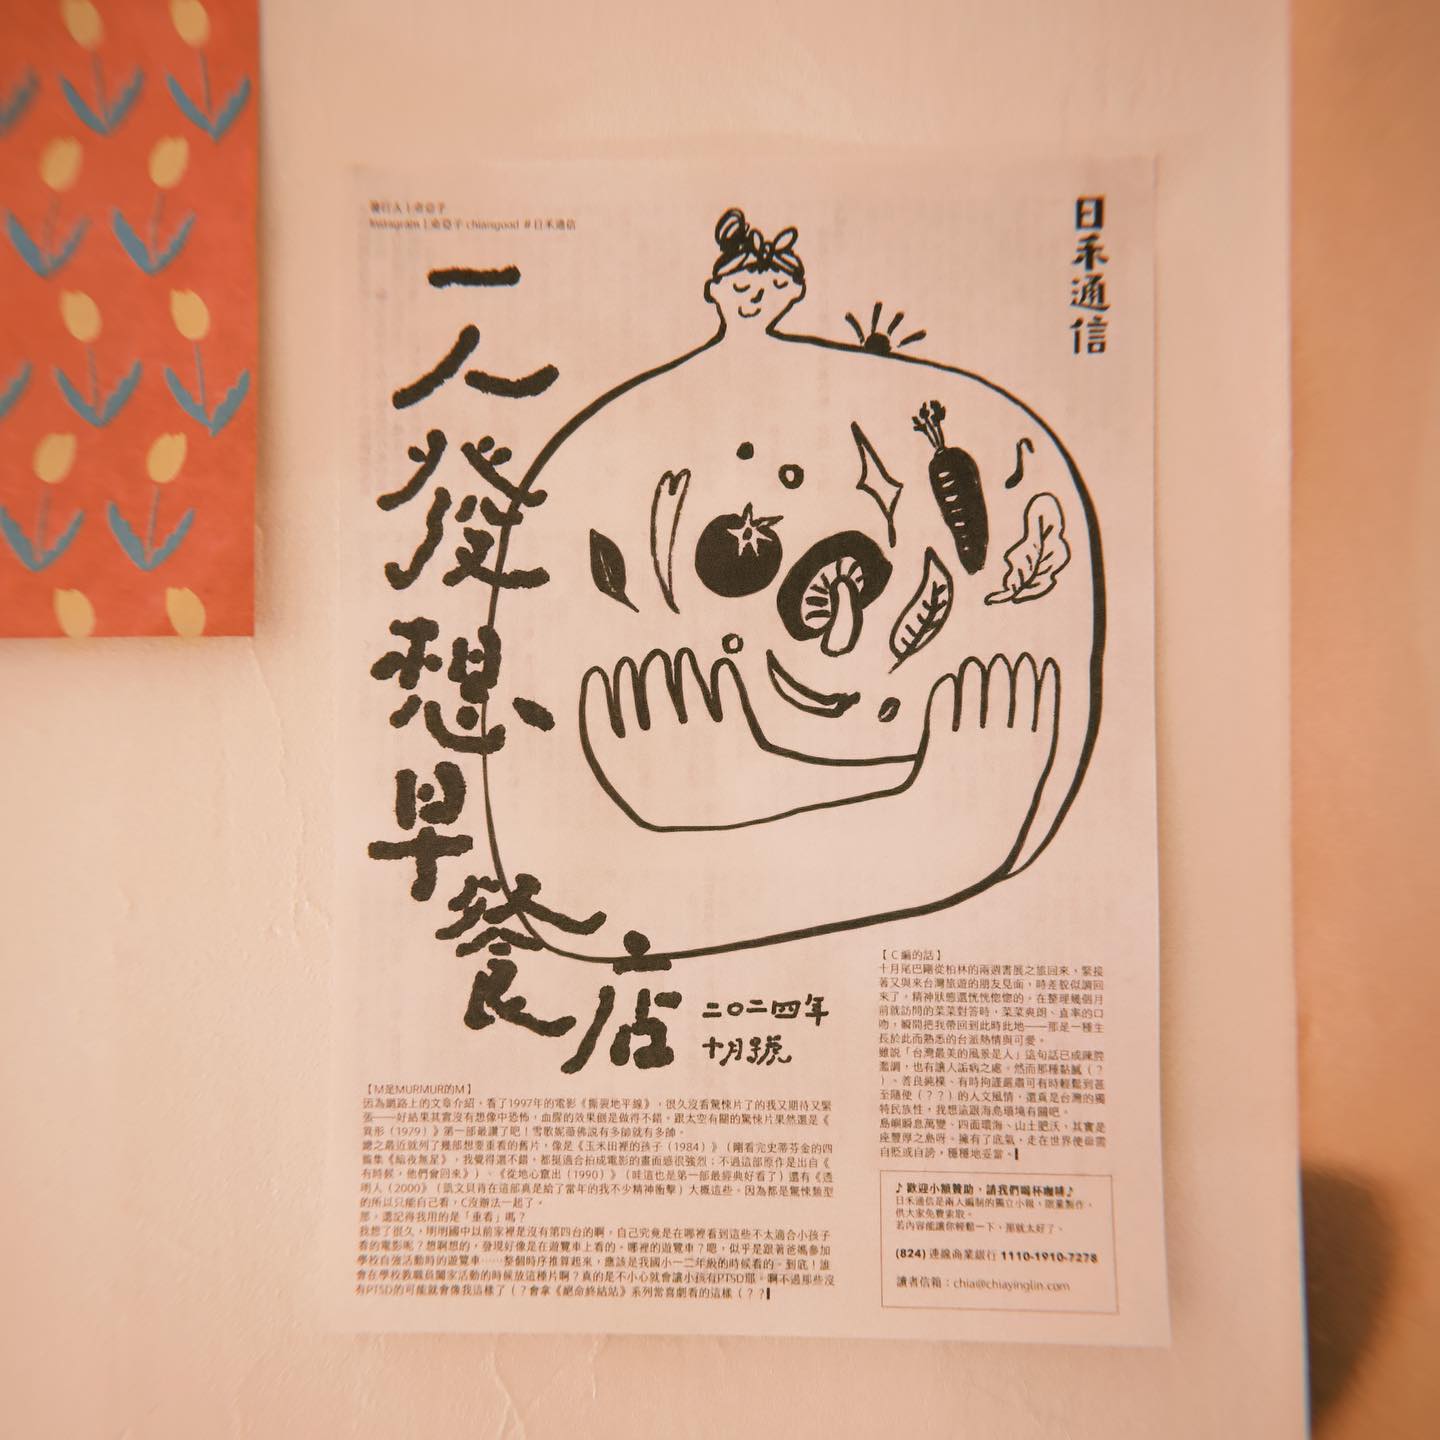 Instagram | 桌亞子 chiangood #日禾通信
日禾通信
一人發想早餐店
二〇二四年
十月號
【C編的話】
十月尾巴剛從柏林的兩週書展之旅回來，緊接
著又與來台灣旅遊的朋友見面，時差貌似調回
來了，精神狀態還恍恍惚惚的。在整理幾個月
前就訪問的菜菜對答時，菜菜爽朗、直率的口
吻，瞬間把我帶回到此時此地——那是一種生
長於此而熟悉的台派熱情與可愛。
雖說「台灣最美的風景是人」這句話已成陳腔
濫調，也有讓人詬病之處。然而那種黏膩（？
）、善良純樸、有時拘謹嚴肅可有時輕鬆到甚
至隨便（？？）的人文風情，還真是台灣的獨
特民族性，我想這跟海島環境有關吧。
島嶼瞬息萬變、四面環海、山土肥沃，其實是
座豐厚之島呀。擁有了底氣，走在世界便毋需
自貶或自謗，穩穩地妥當。
【M是MURMUR的M】
因為網路上的文章介紹，看了1997年的電影《撕裂地平線》，很久沒看驚悚片了的我又期待又緊
張——好結果其實沒有想像中恐怖，血腥的效果倒是做得不錯。跟太空有關的驚悚片果然還是《
異形（1979）》第一部最讚了吧！雪歌妮薇佛說有多帥就有多帥。
總之最近就列了幾部想要重看的舊片，像是《玉米田裡的孩子（1984）》（剛看完史蒂芬金的四
篇集《暗夜無星》，我覺得還不錯，都挺適合拍成電影的畫面感很強烈；不過這部原作是出自《
有時候，他們會回來》）、《從地心竄出（1990）》（哇這也是第一部最經典好看了）還有《透
明人（2000）》（凱文貝肯在這部真是給了當年的我不少精神衝擊）大概這些。因為都是驚悚類型
的所以只能自己看，C沒辦法一起了。
那，還記得我用的是「重看」嗎？
我想了很久，明明國中以前家裡是沒有第四台的啊，自己究竟是在哪裡看到這些不太適合小孩子
看的電影呢？想啊想的，發現好像是在遊覽車上看的。哪裡的遊覽車？嗯，似乎是跟著爸媽參加
學校自強活動時的遊覽車……整個時序推算起來，應該是我國小一二年級的時候看的。到底！誰
會在學校教職員闔家活動的時候放這種片啊？真的是不小心就會讓小孩有PTSD耶。啊不過那些沒
有PTSD的可能就會像我這樣了（？會拿《絕命終結站》系列當喜劇看的這樣（？？
♪歡迎小額贊助，請我們喝杯咖啡♪
日禾通信是兩人編制的獨立小報，限量製作，
供大家免費索取。
若內容能讓你輕鬆一下，那就太好了。
(824) 連線商業銀行 1110-1910-7278
讀者信箱：chia@chiayinglin.com